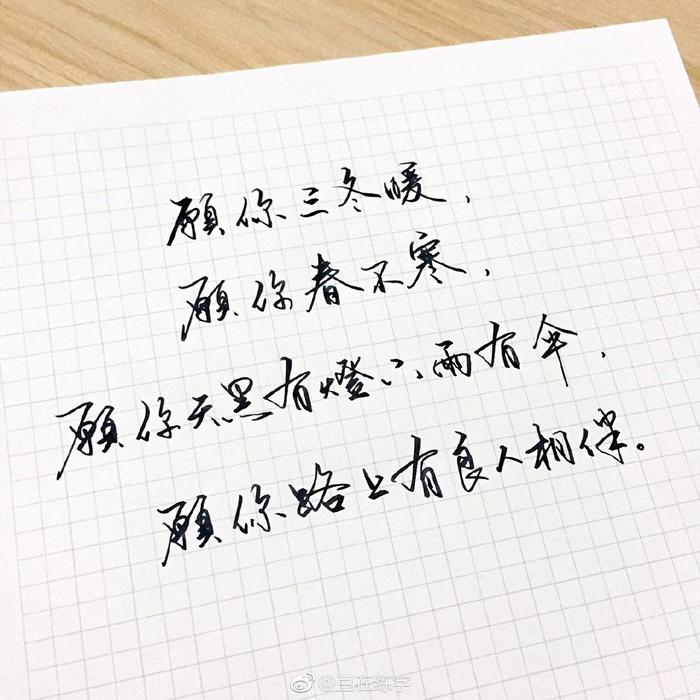 願你三冬暖，
願你春不寒，
願你天黑有燈下雨有伞，
願你路上有良人相伴。
@巨在练字